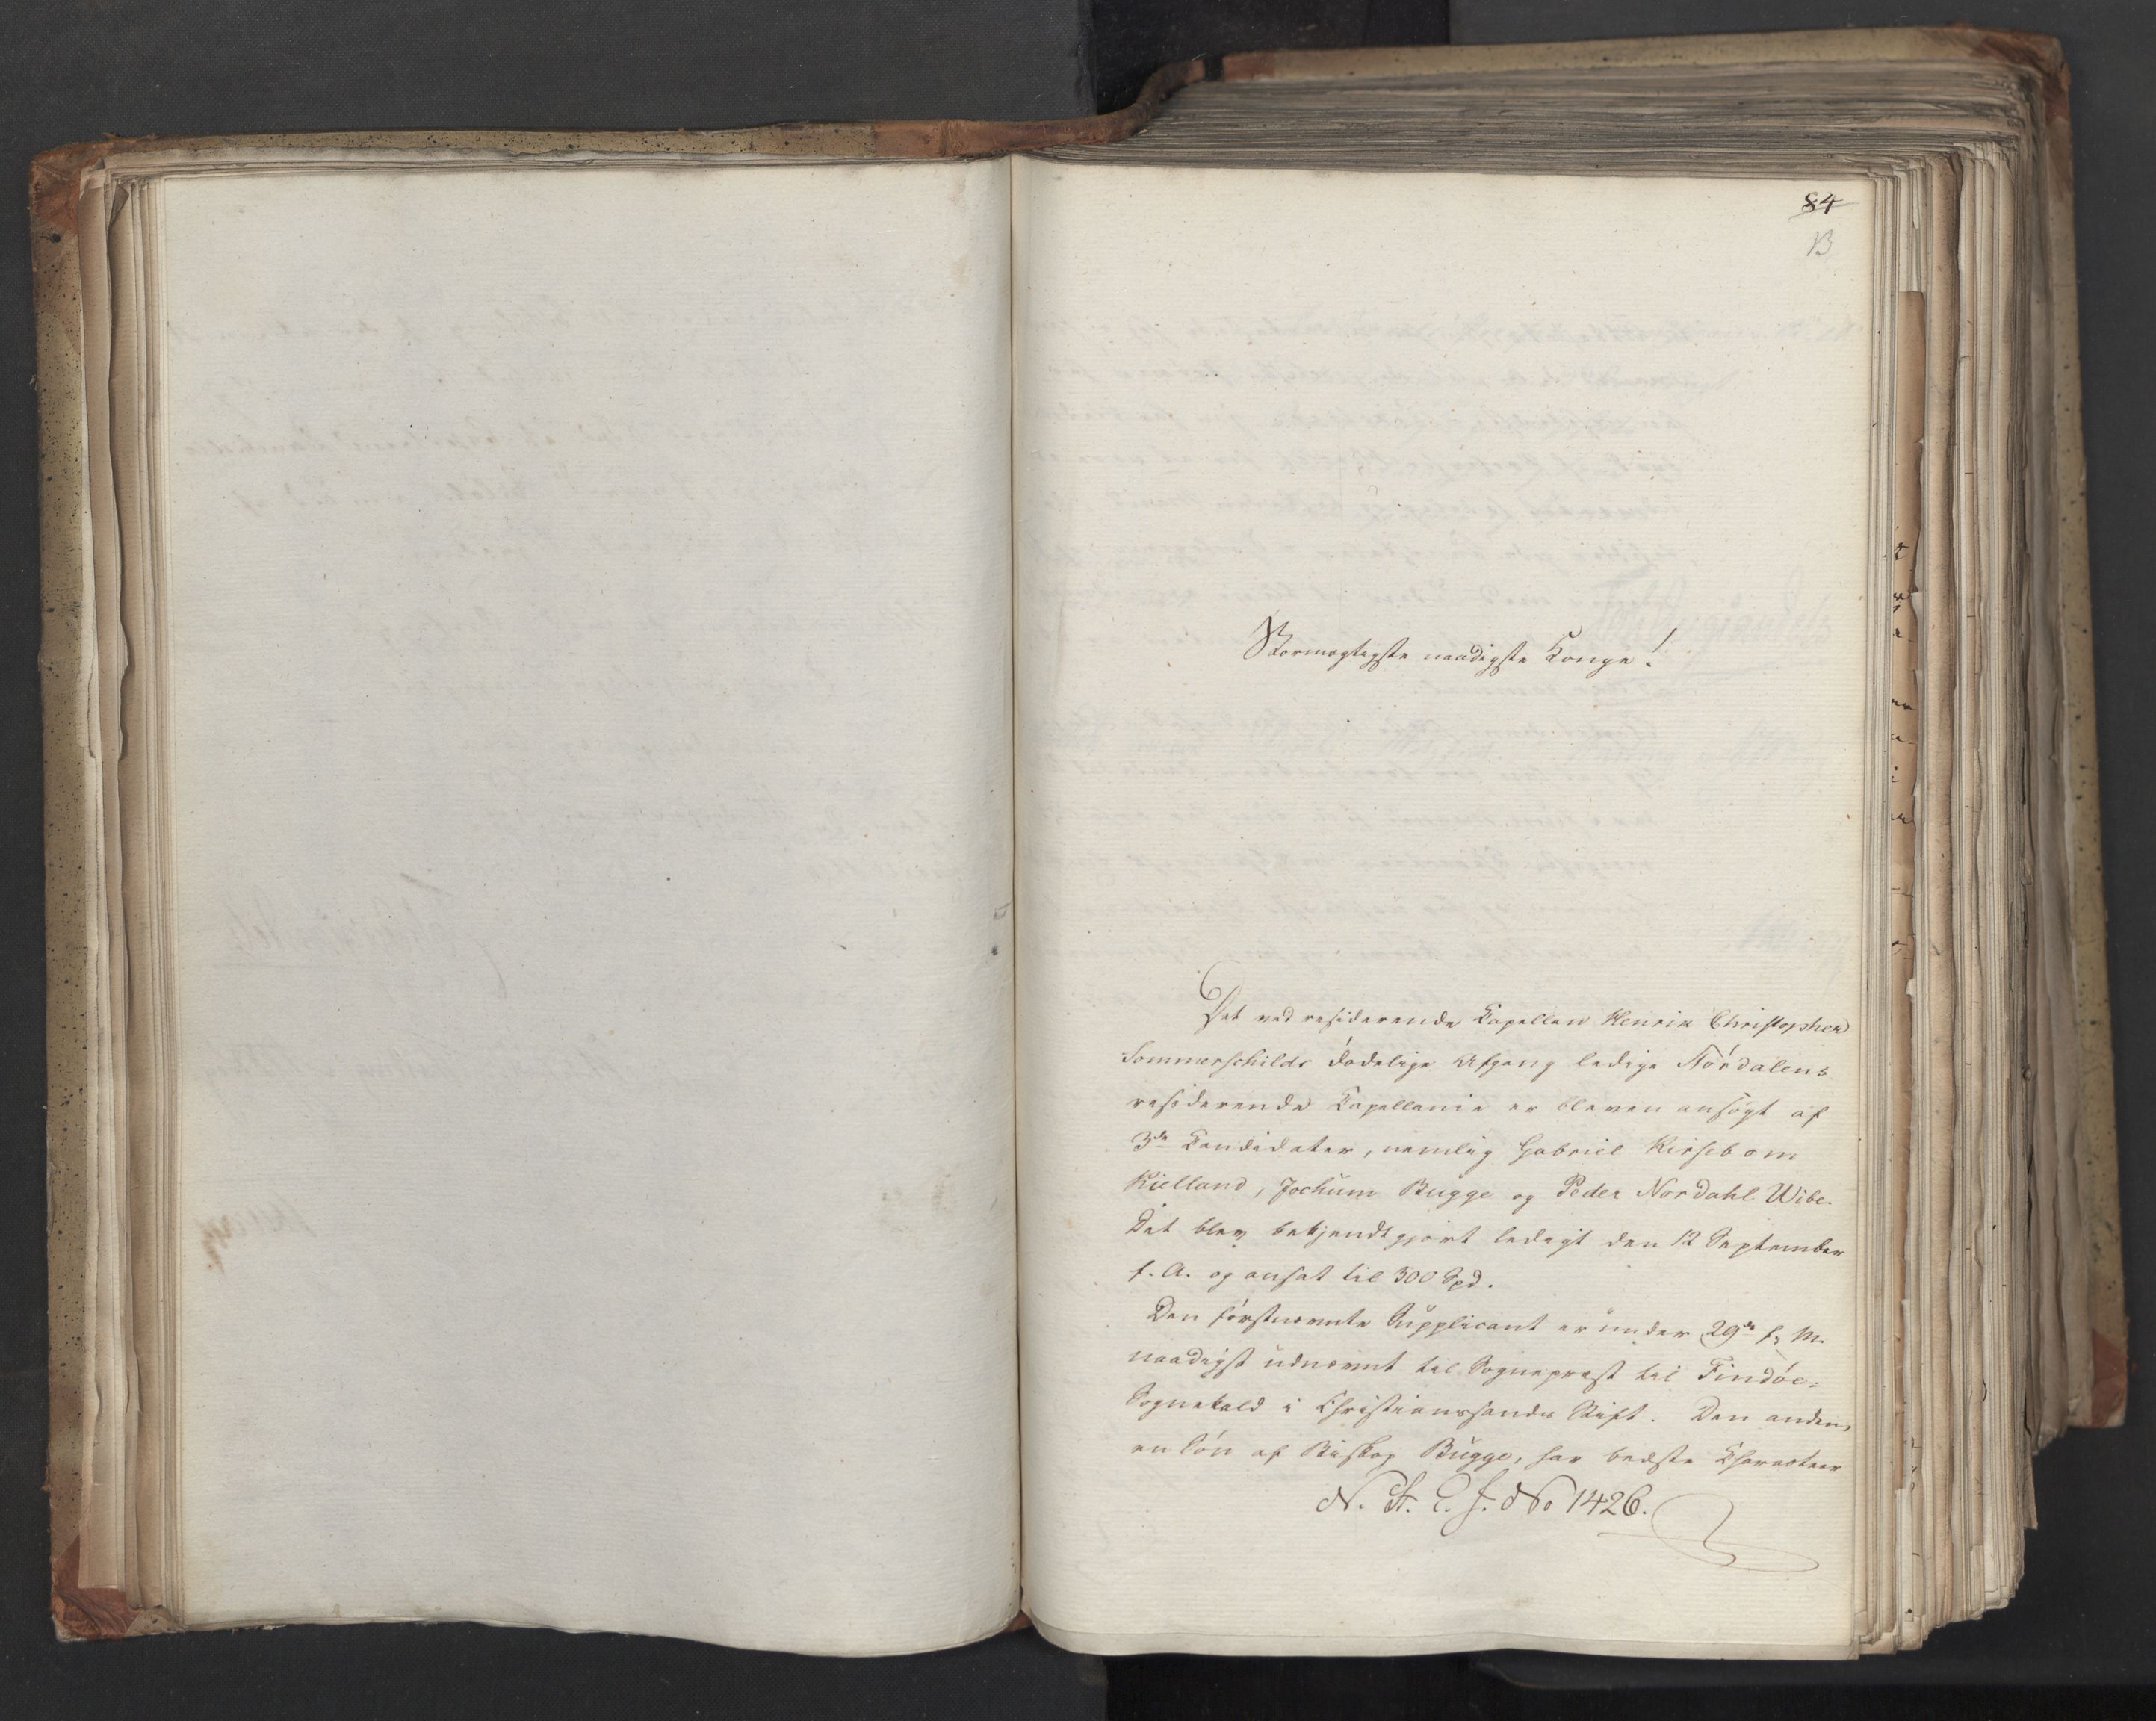 84
13
Stormægtigste naadigste Konge!
Det ved residerende Kapellan Henrik Christopher
Sommerschilds dødelige Afgang ledige Nordalens
residerende Kapellanie er bleven ansøgt af
3de Kandidater, nemlig Gabriel Kirsebom
Kielland, Jochum Bugge og Peder Nordahl Wibe.
Det blev bekjendtgjort ledigt den 12 September
f. A. og ansat til 300 Spd.
Den førstnævnte Supplicant er under 29de f. M.
naadigst udnævnt til Sognepræst til Findöe-
Sognekald i Christianssands Stift. Den anden,
en Søn af Biskop Bugge, har bedste Charakteer
N. St. C. J. No 1426.